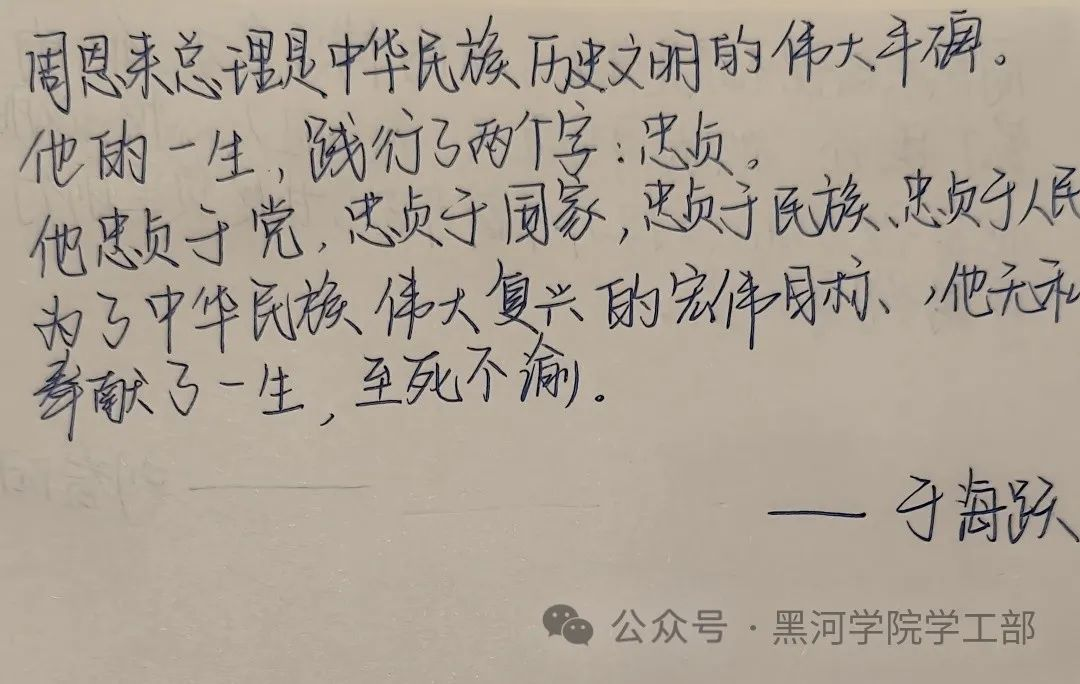 周恩来总理是中华民族历史文明的伟大丰碑。
他的一生，践行了两个字：忠贞。
他忠贞于党，忠贞于国家，忠贞于民族、忠贞于人民
为了中华民族伟大复兴的宏伟目标、，他无私
奉献了一生，至死不渝。
—— 于海跃
公众号 · 黑河学院学工部